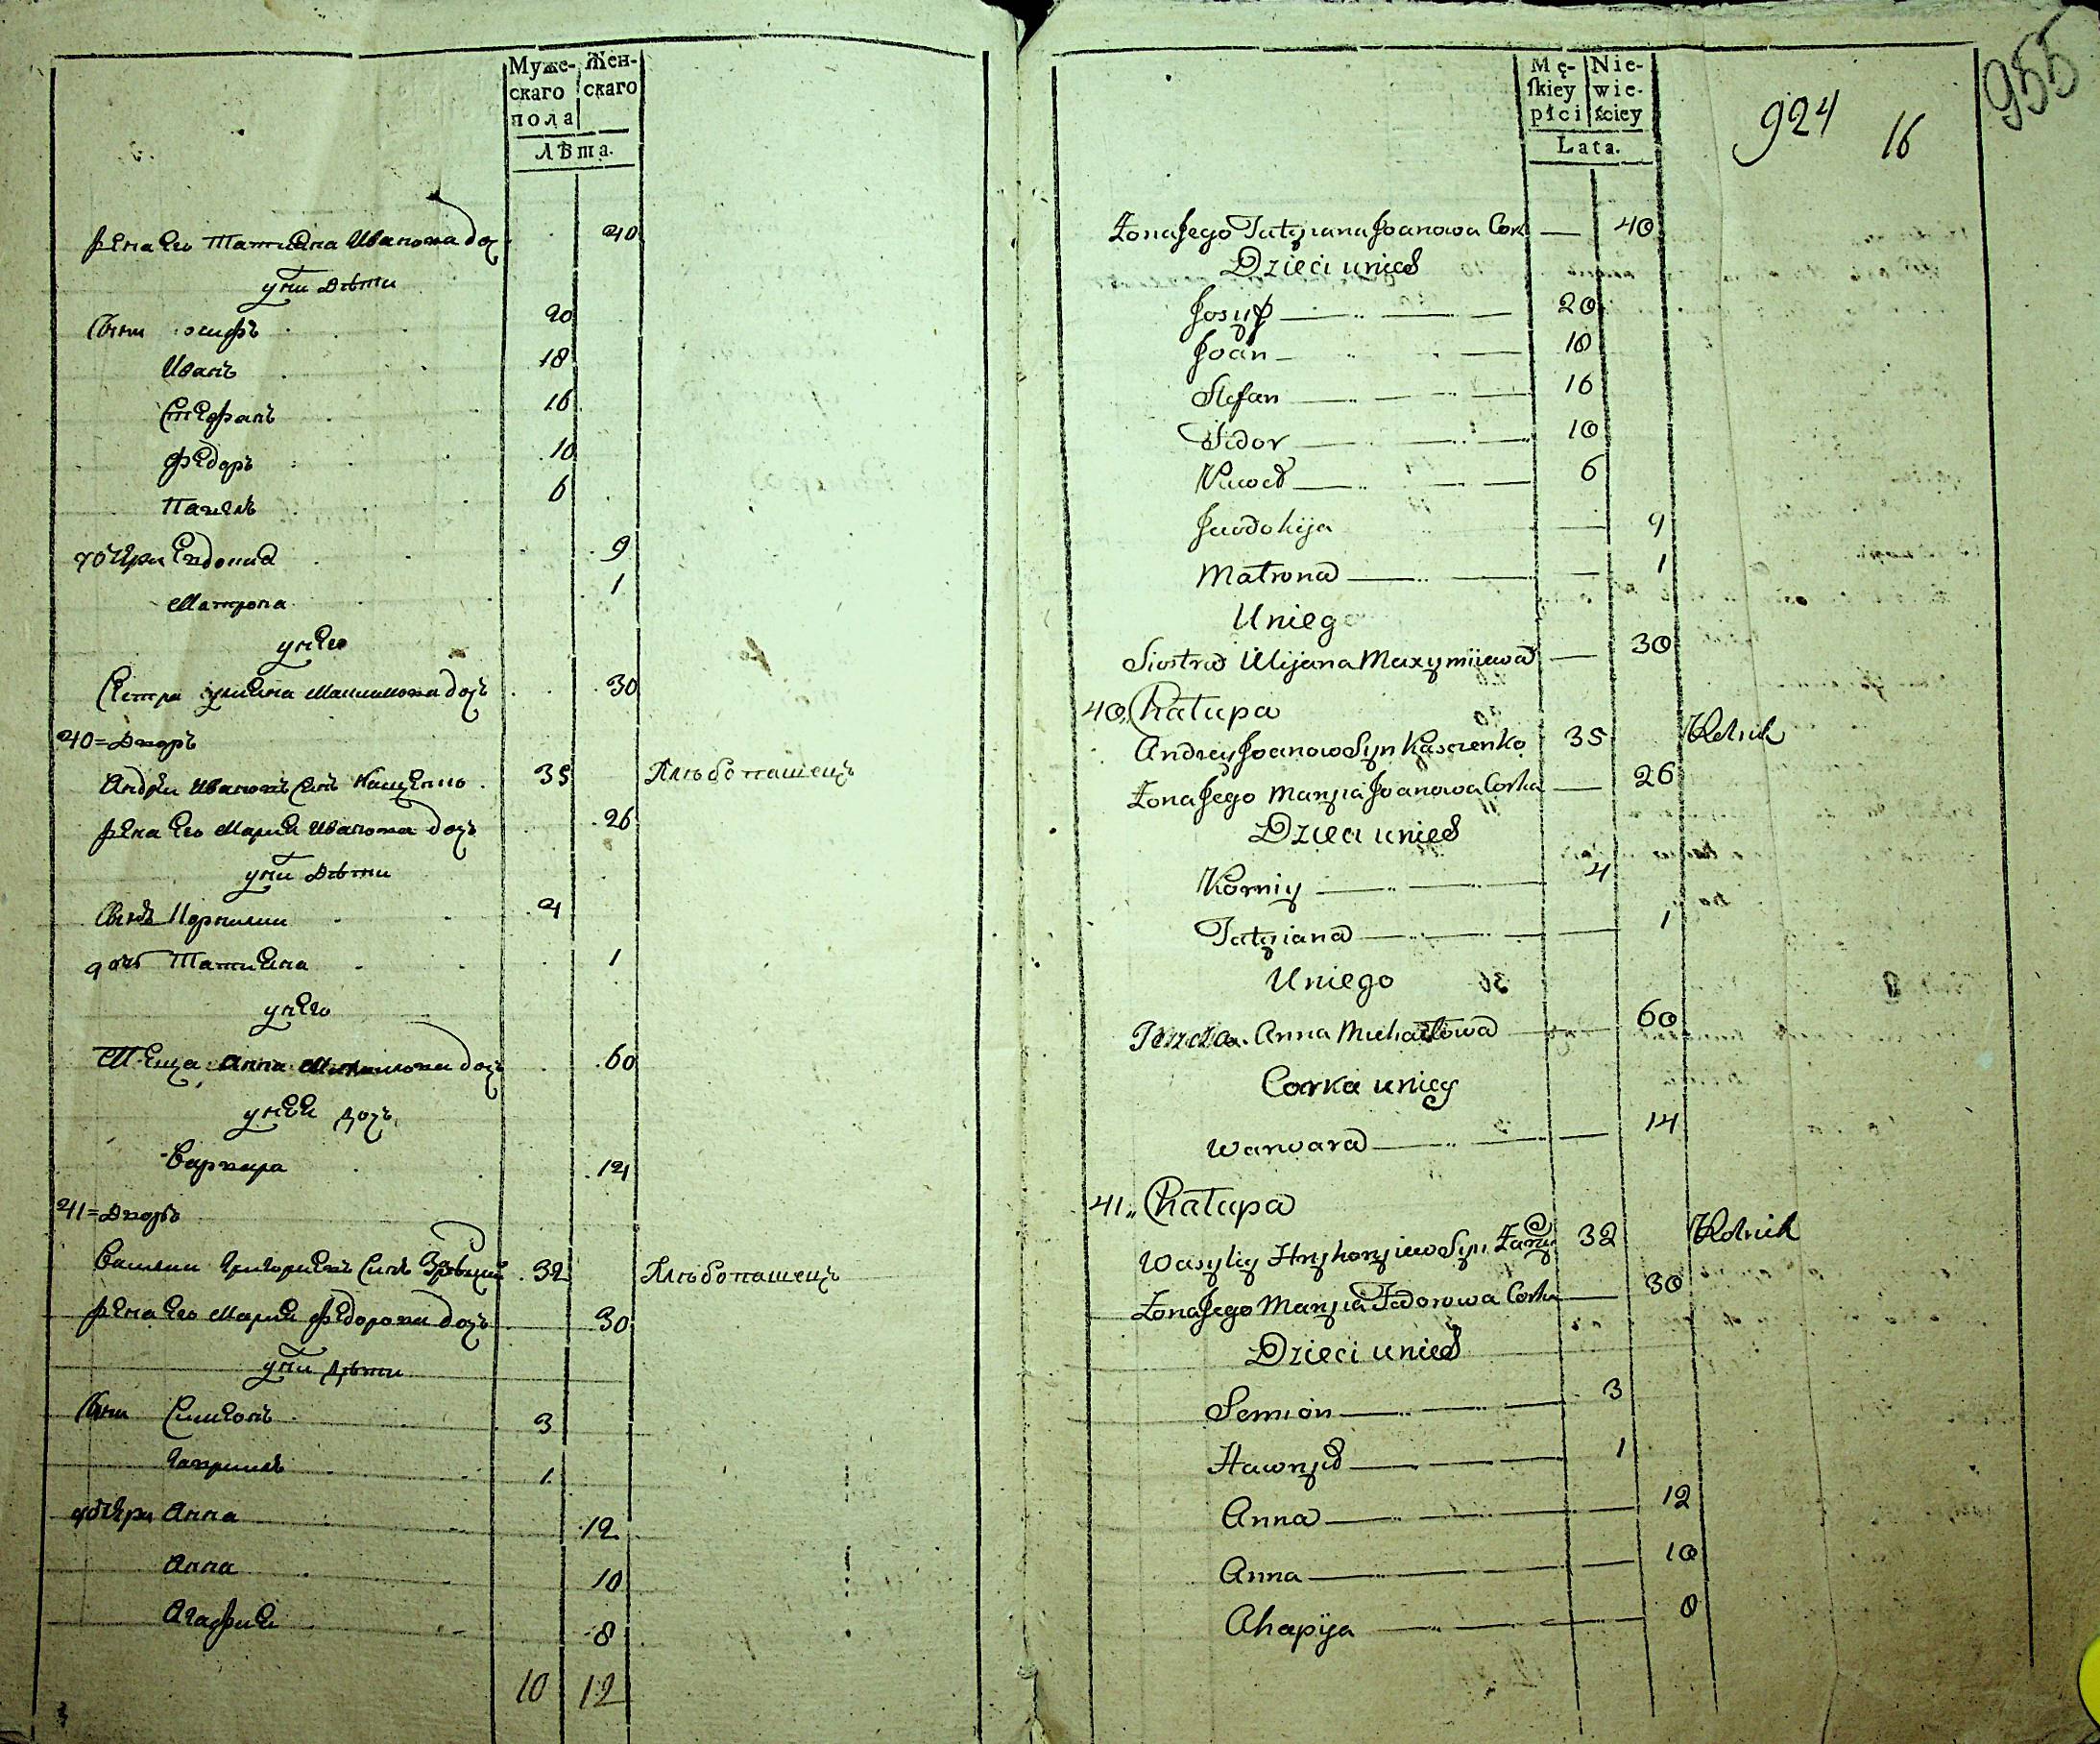 Муже-
скаго
пола
Жен-
скаго
Лѣта.
жена его Татиана Иванова доч
40
у них дѣти
Сыни осифъ 20
Иванъ 18
Стефанъ 16
Федоръ 10
Павелъ 6
дочери Евдокия 9
Матрона 1
у него
Сестра улиана Максимова дочь 30
40 = Дворъ
Андрѣи Ивановъ синъ Кащенко 35 Хлѣбопашецъ
жена его Мариа Иванова дочь 26
у них дѣти
Сынъ Корнилии 4
дочь Татиана 1
у него
Теща Анна Михаилова дочь 60
у неѣ дочь
Варвара 14
41 = Дворъ
Василии Григориевъ синъ 32 Хлѣбопашецъ
жена его Мариа Федорова дочь 30
у них дѣти
Сыни Симеонъ 3
Гавриилъ 1
дочери Анна 12
Анна 10
Агафиа 8
10 12
Mę-
skiey
płci
Nie-
wie-
ściey
Lata.
924
16
955
Żona Jego Tatyiana Joanowa Cork 40
Dzieci unich
Josyf 20
Joan 18
Stefan 16
Fedor 10
Paweł 6
Jewdokija 9
Matrona 1
Uniego
Siostra Ulijana Maxymiiewa 30
40,, Chałupa
Andrey Joanow Syn Kasczenko 35 Rolnik
Żona Jego Maryia Joanowa Corka 26
Dzieci unich
Korniy 4
Tatyiana 1
Uniego
Anna Michaiłowa 60
Corka uniey
Warwara 14
41,, Chałupa
Wasyliy Hryhoryiew Syn 32 Rolnik
Żona Jego Maryia Fedorowa Corka 30
Dzieci unich
Semion 3
Hawryło 1
Anna 12
Anna 10
Ahapija 8